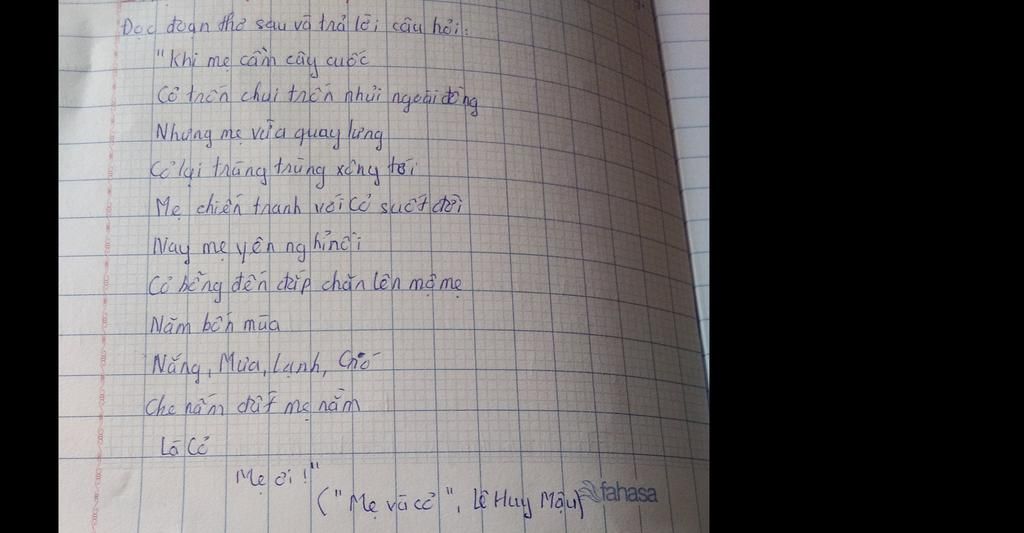 Đọc đoạn thơ sau và trả lời câu hỏi:
"Khi mẹ cầm cây cuốc
Cỏ trốn chui trốn nhủi ngoài đồng
Nhưng mẹ vừa quay lưng
Cỏ lại trùng trùng xông tới
Mẹ chiến tranh với cỏ suốt đời
Nay mẹ yên nghỉ rồi
Cỏ bỗng đến đắp chăn lên mộ mẹ
Năm bốn mùa
Nắng, Mưa, Lạnh, Gió
Che nấm đất mẹ nằm
Là Cỏ
Mẹ ơi!"
("Mẹ và cỏ", Lê Huy Mậu)
fahasa